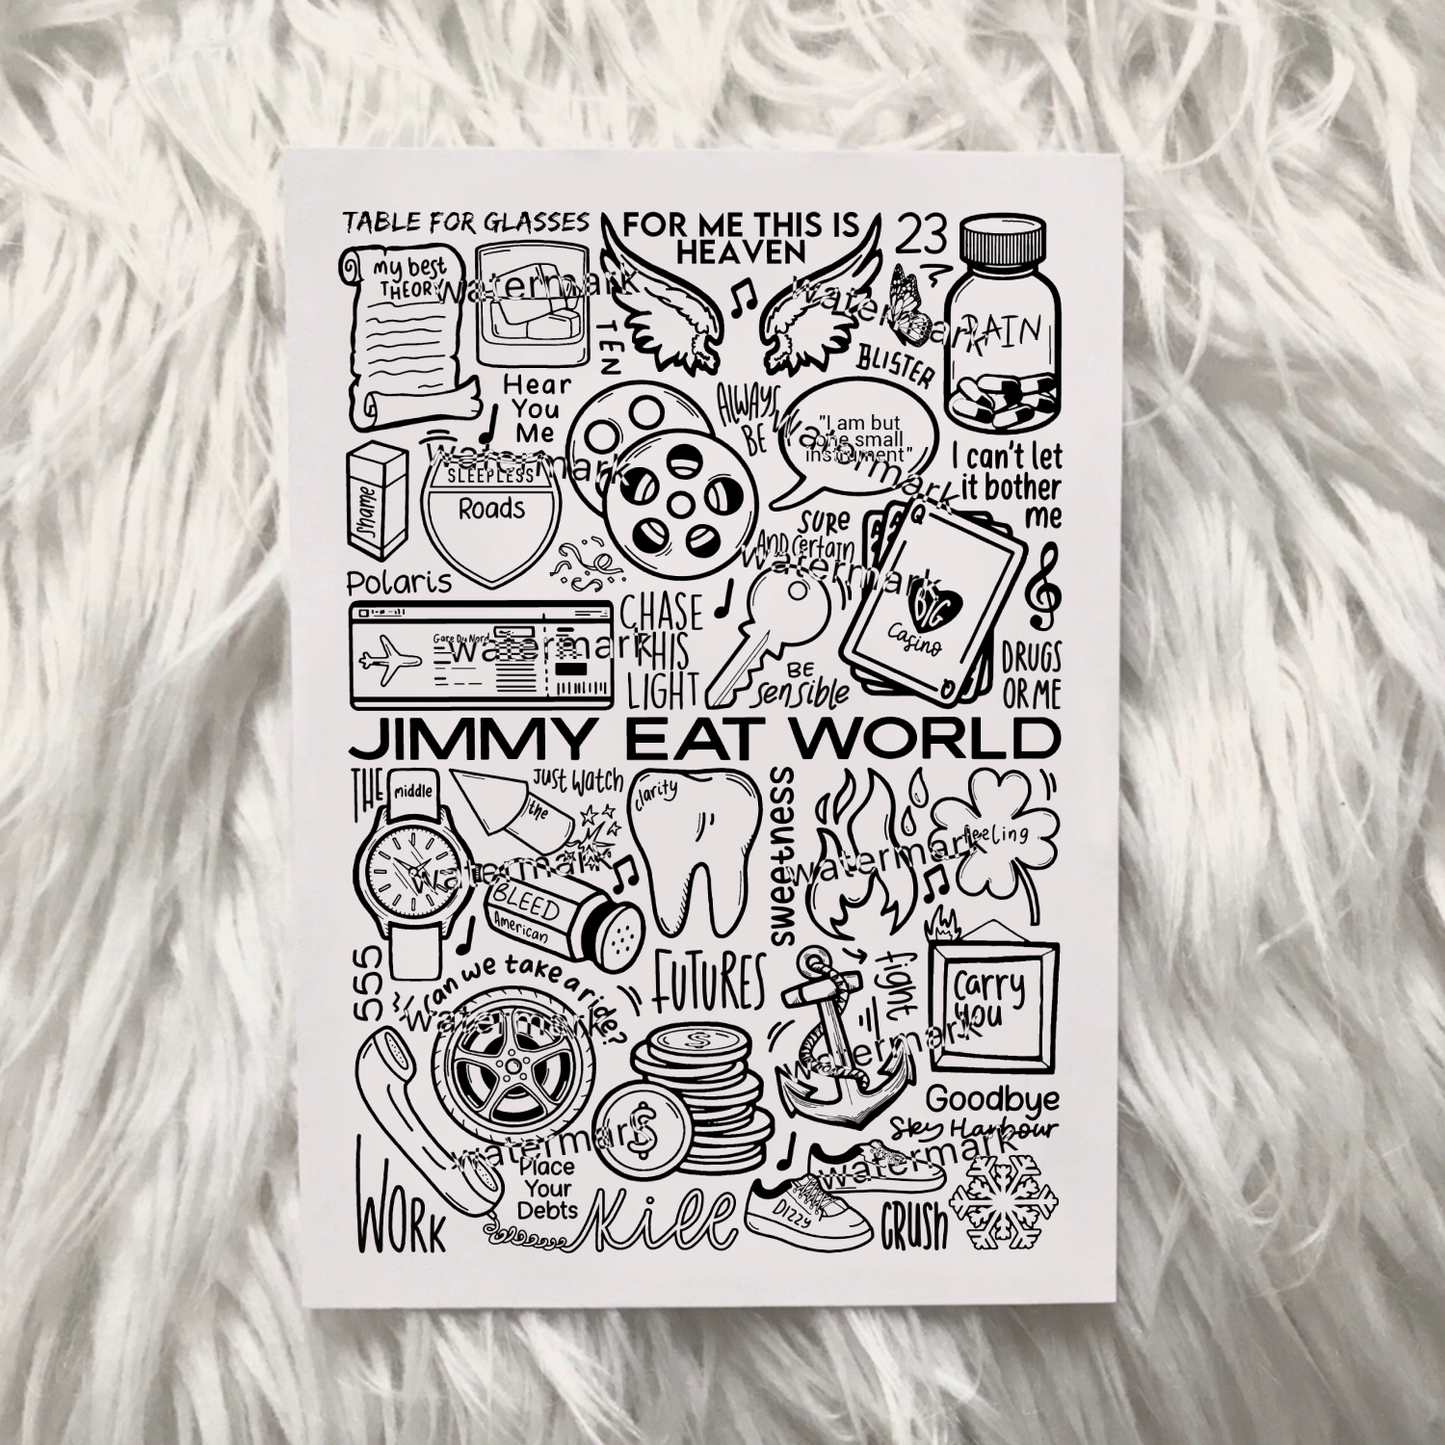 TABLE FOR GLASSES
FOR ME THIS IS
HEAVEN
23
my best
THEORY
watermark
TEN
watermark
PAIN
BLISTER
Hear
You
Me
ALWAYS
BE
"I am but
one small
instrument"
watermark
I can't let
it bother
me
Shame
watermark
SLEEPLESS
Roads
SURE
AND Certain
watermark
Q
BIG
Casino
Q
Polaris
Gare Du Nord
watermark
CHASE
THIS
LIGHT
BE
Sensible
DRUGS
OR ME
JIMMY EAT WORLD
THE
middle
Just Watch
the
clarity
sweetness
feeling
watermark
watermark
BLEED
American
555
can we take a ride?
watermark
FUTURES
fight
Carry
You
watermark
Goodbye
Sky Harbour
watermark
watermark
WORK
Place
Your
Debts
Kill
DIZZY
CRUSH